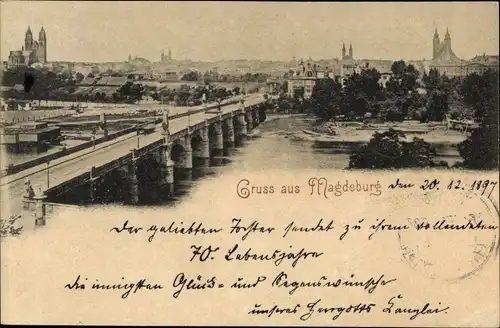 Gruss aus Magdeburg den 20.12.1897
Der geliebten Tochter sendet zu ihrem vollendeten
70. Lebensjahre
die innigsten Glück- und Segenswünsche
unseres Herrgotts Kanzlei.